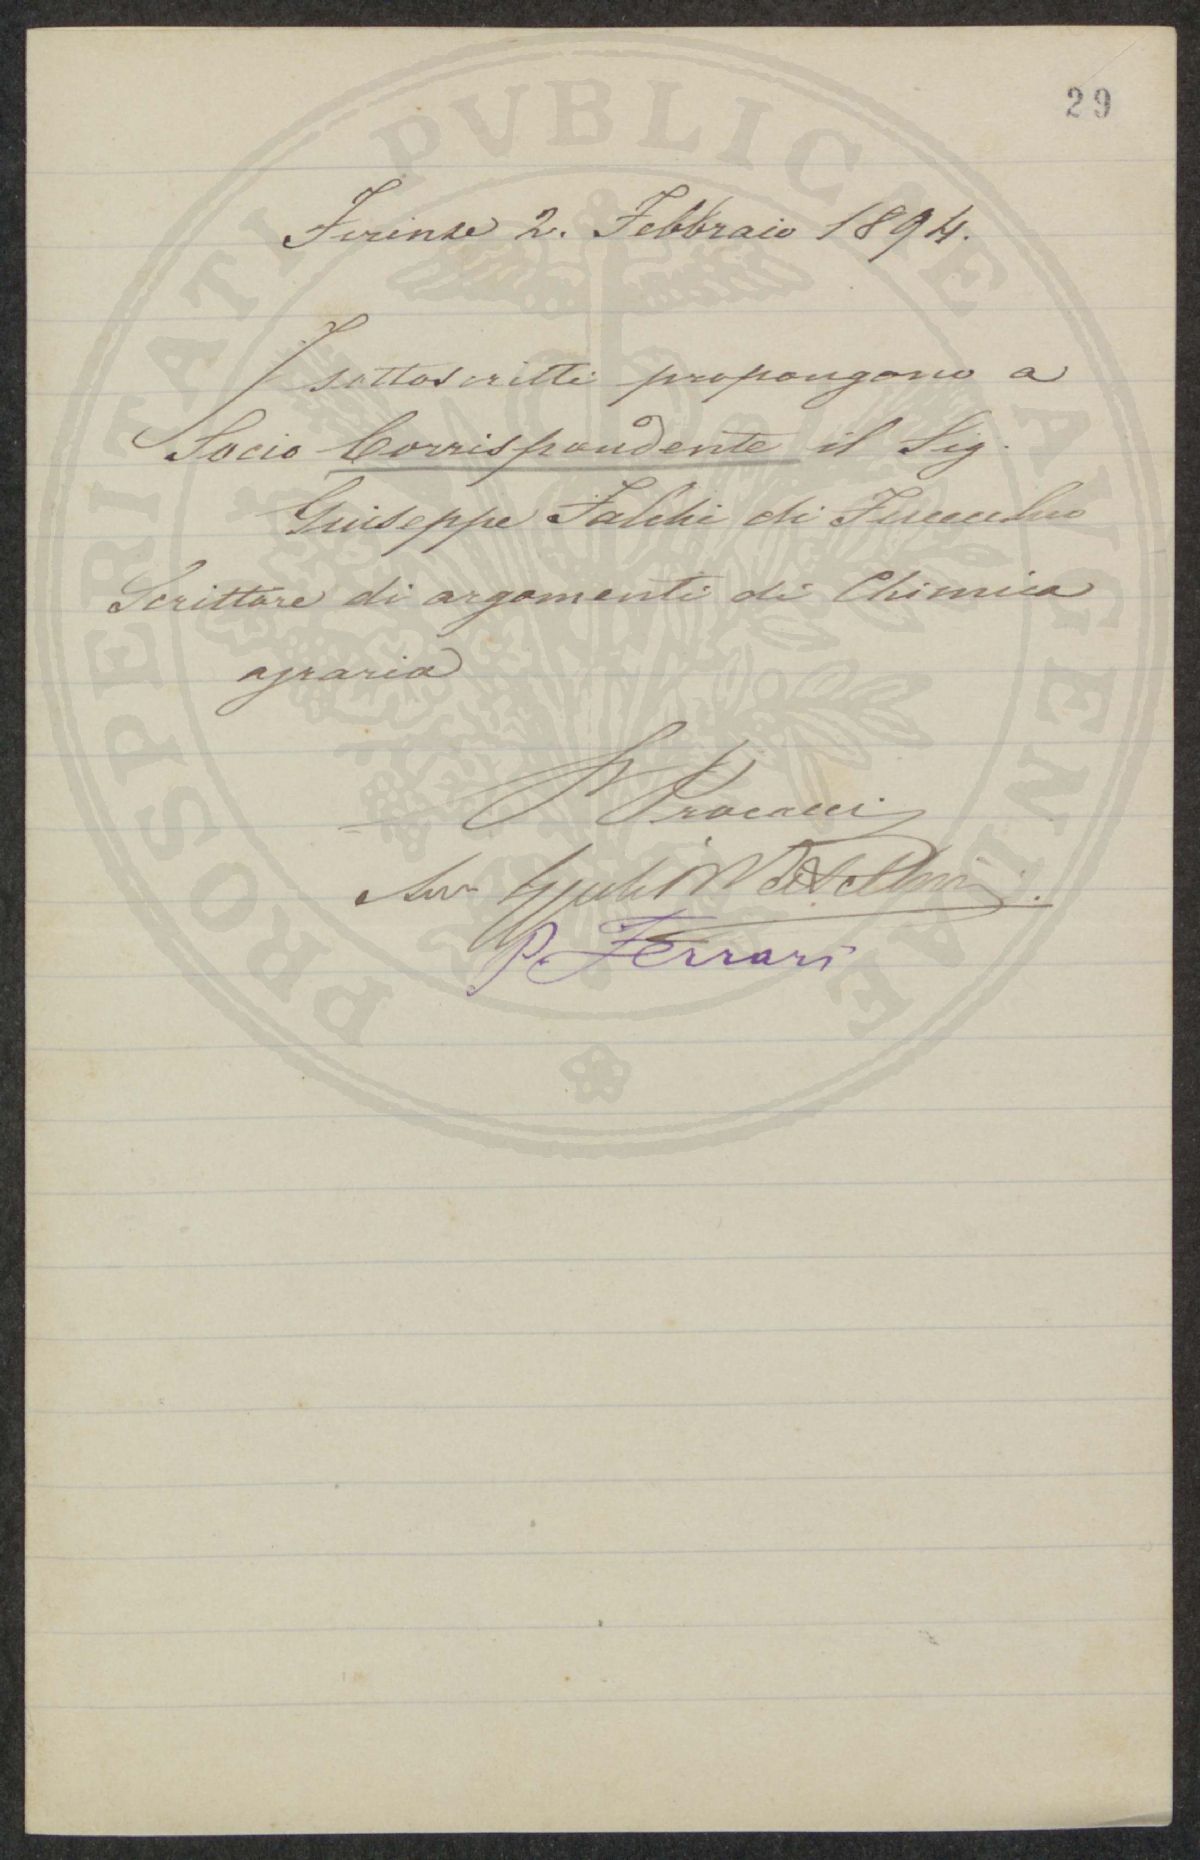 29
PROSPERITATI PVBLICAE AVGENDAE
Firenze 2. Febbraio 1894.
I sottoscritti propongono a
Socio Corrispondente il Sig.
Giuseppe Falchi di Fucecchio
Scrittore di argomenti di Chimica
agraria
Procacci
P. Ferrari